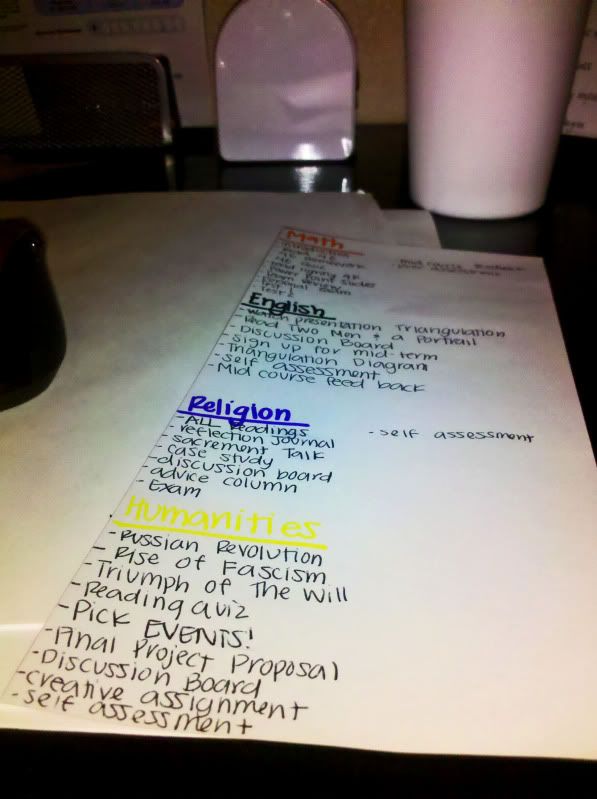 Math
- Read 4.E
- Power Point Slides
- Exam Review
- Proposal
- Test!
- mid course feedback
- self assessment
English
- Watch presentation Triangulation
- Read TWO Men & a Portrait
- Discussion Board
- sign up for mid-term
- Triangulation Diagram
- self assessment
- Mid course feed back
Religion
- ALL Readings
- reflection journal
- self assessment
- sacrement Talk
- case study
- discussion board
- advice column
- Exam
Humanities
- Russian Revolution
- Rise of Fascism
- Triumph of The Will
- Reading quiz
- Pick EVENTS!
- Final Project Proposal
- Discussion Board
- creative assignment
- self assessment